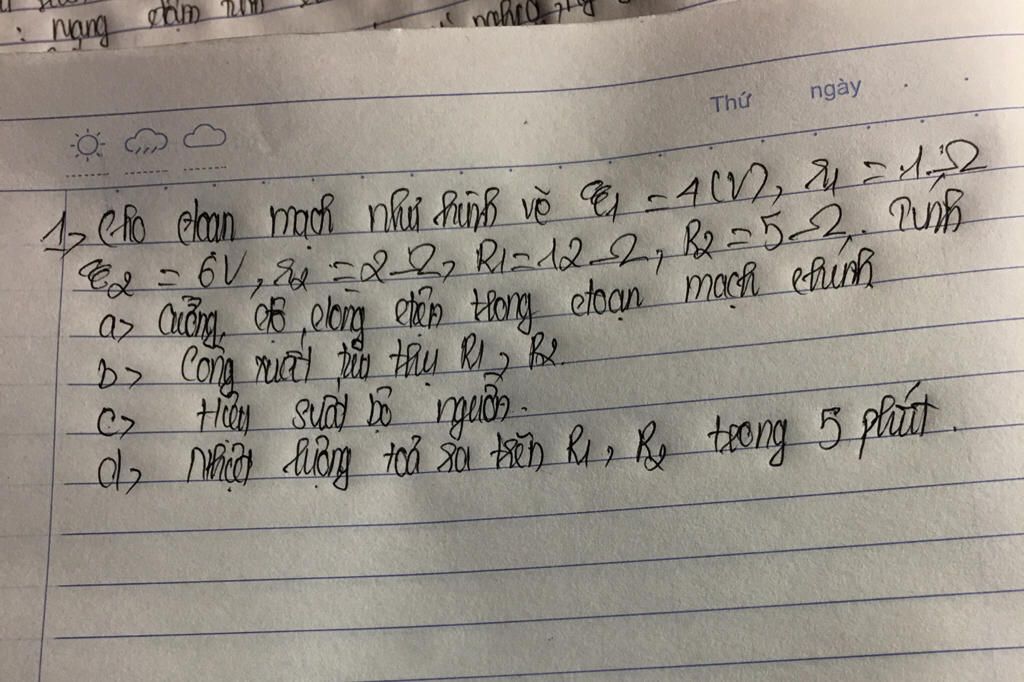 : nạng đậm
Thứ ngày
1, Cho đoạn mạch như hình vẽ ξ1 = 4(V), r1 = 1Ω
ξ2 = 6V, r2 = 2Ω, R1 = 12Ω, R2 = 5Ω. Tính
a> Cường độ dòng điện trong đoạn mạch chính
b> Công suất tiêu thụ R1, R2.
c> Hiệu suất bộ nguồn.
d> Nhiệt lượng toả ra trên R1, R2 trong 5 phút.